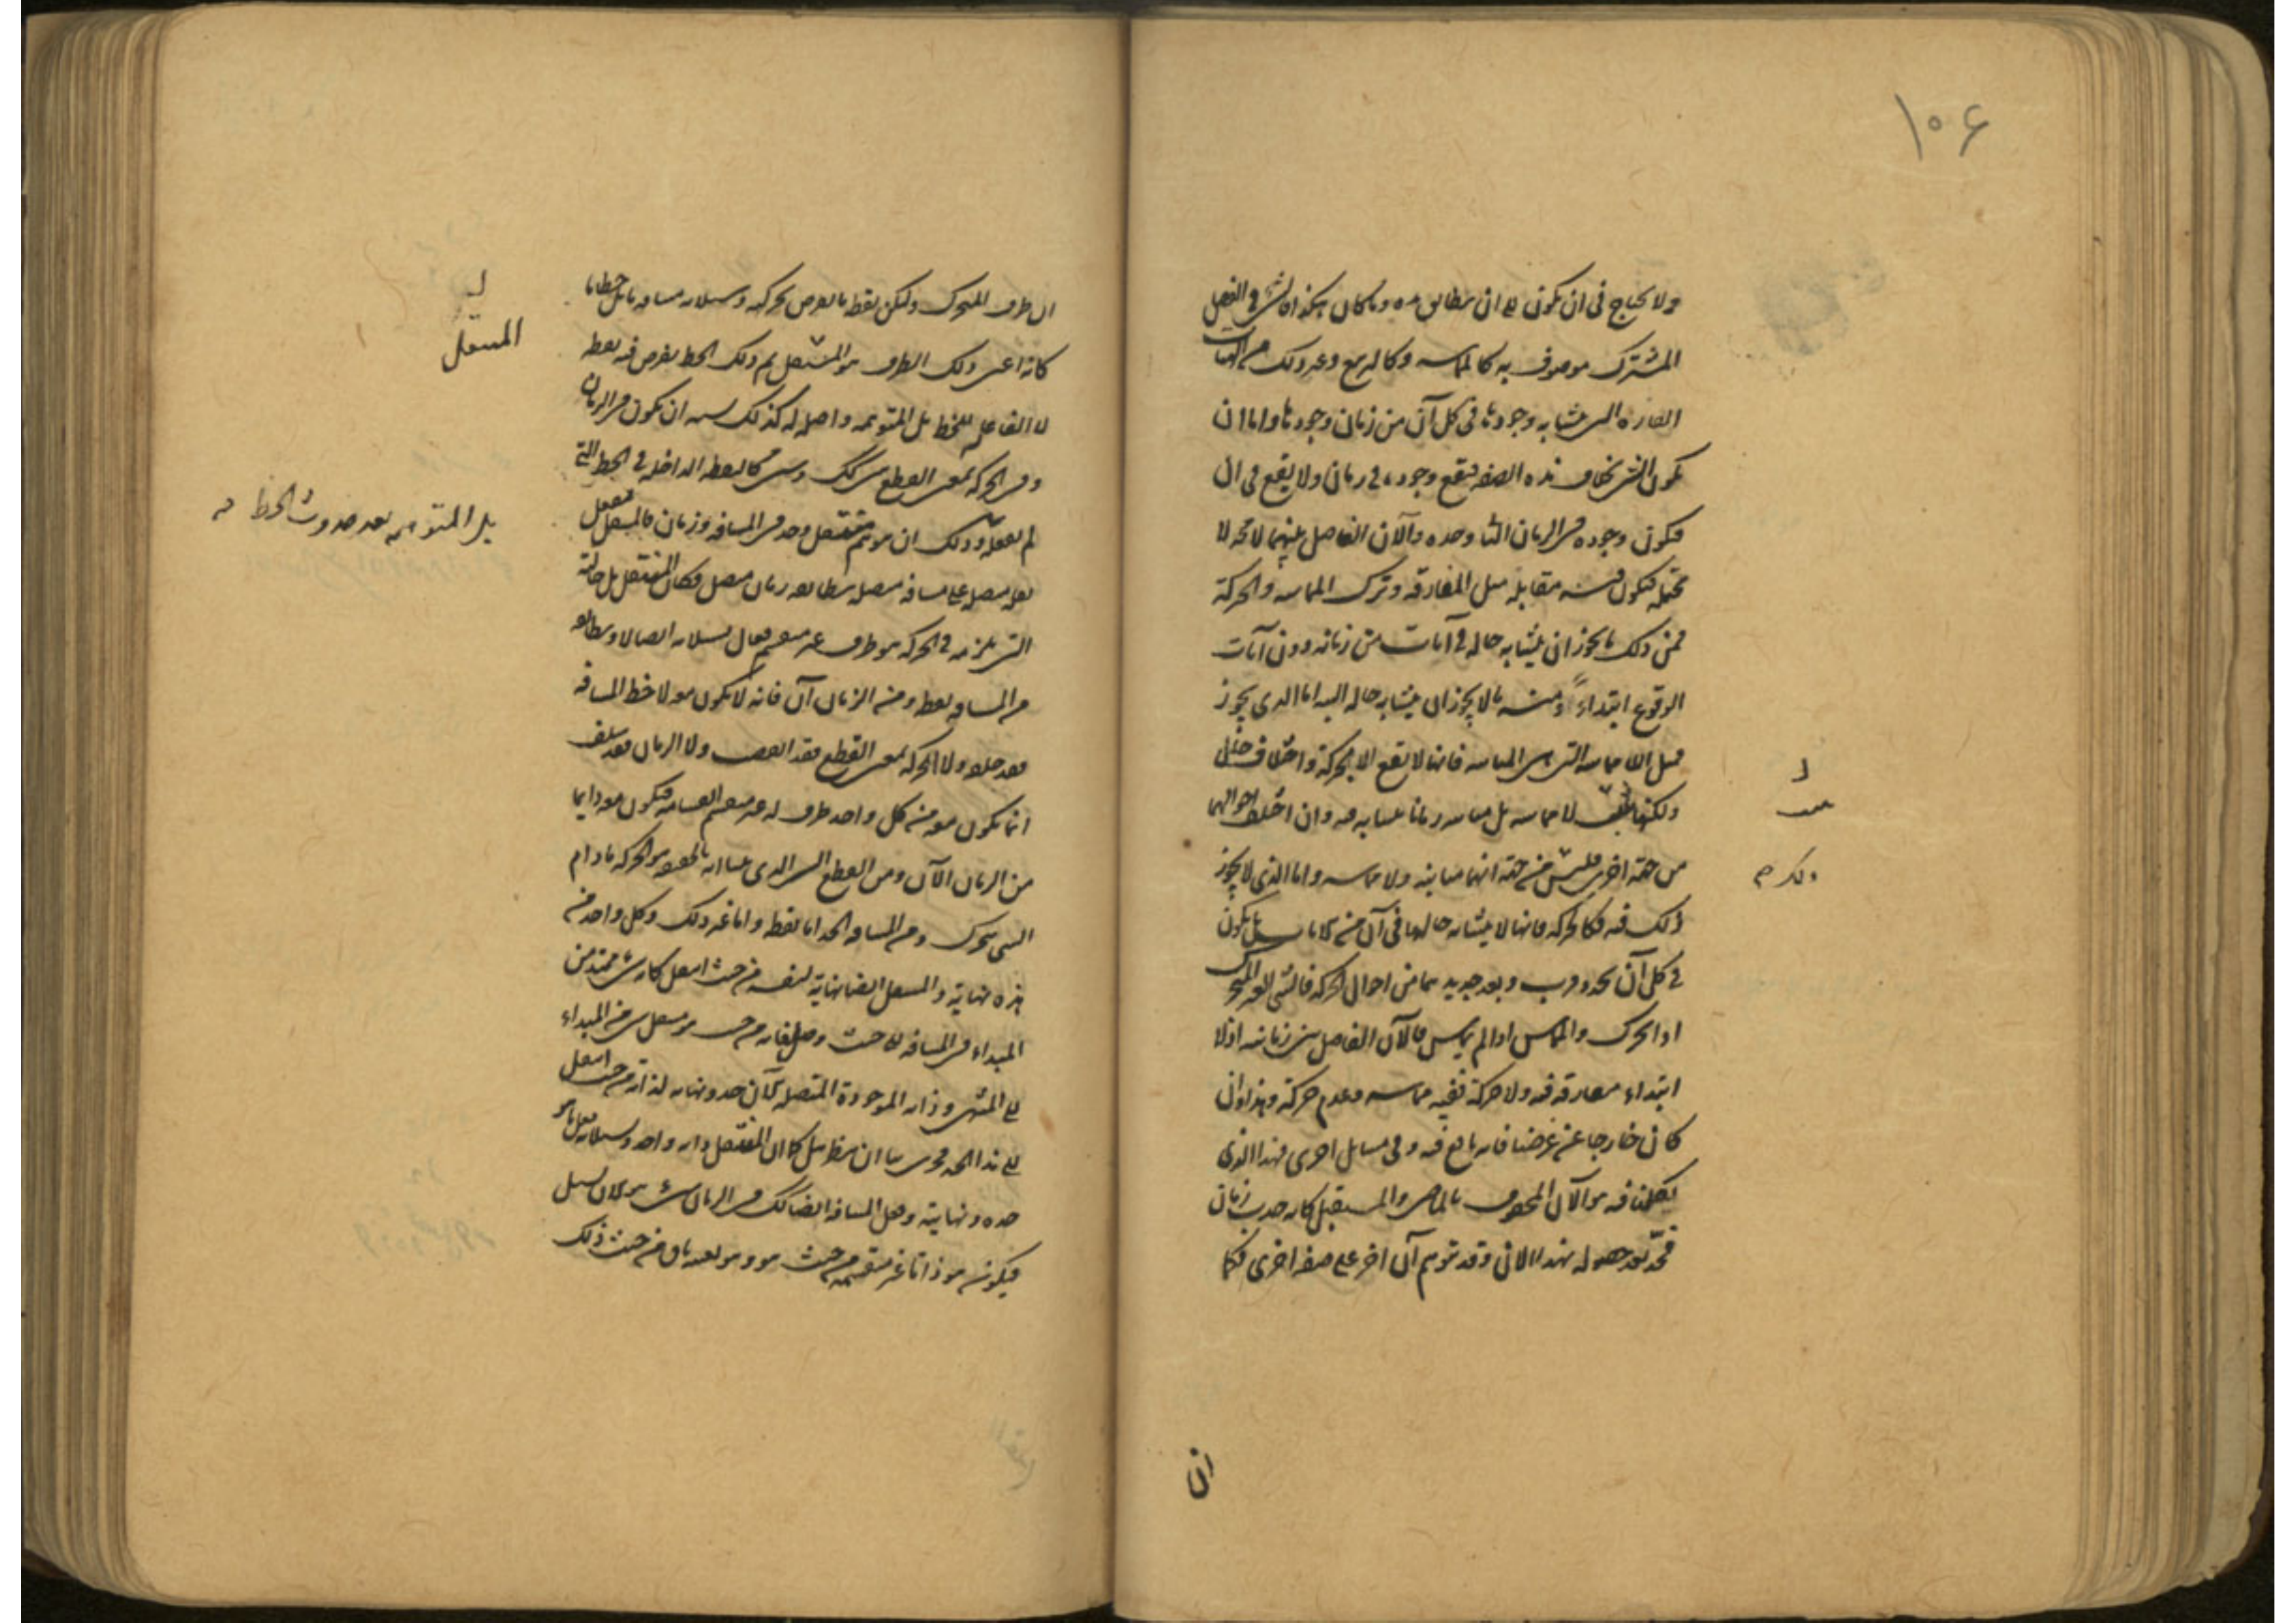 ١٠۶
ولا يحتاج في ان يكون الى ان يطابق مدة وما كان هكذا فالشئ في الفصل
المشترك موصوف به كالمماسة وكالتربيع وغير ذلك من الهيئات
القارة التي يتشابه وجودها في كل آن من زمان وجودها واما ان
يكون الشئ بخلاف هذه الصفة فيقع وجوده في زمان ولا يقع في آن
فيكون وجوده في الزمان الثاني وحده والآن الفاصل بينهما لا محالة لا
يحتمله فيكون فيه مقابله مثل المفارقة وترك المماسة والحركة
فمن ذلك ما يجوز ان يتشابه حاله في آنات من زمانه دون آنات
الوقوع ابتداءً ومنه ما لا يجوز ان يتشابه حاله البتة اما الذي يجوز
فمثل اللامماسة التي هي المباينة فانها لا تقع الا بحركة واختلاف حال
ولكنها تثبت لا مماسة بل مباينة زمانا متشابهة فيه وان اختلف احوالهما
من جهة اخرى فليس من جهة انها مباينة ولا مماسة واما الذي لا يجوز
ذلك فيه فكالحركة فانها لا يتشابه حالها في آن من الآنات بل يكون
في كل آن تجدد قرب وبعد جديد هما من احوال الحركة فالشئ الغير المتحرك
اذا تحرك والمماس اذا لم يماس فالآن الفاصل بين زمانيه اذ لا
ابتداء مفارقة فيه ولا حركة ففيه مماسة وعدم حركة وهذا وان
كان خارجا عن غرضنا فانه نافع فيه وفي مسائل اخرى فهذا الذي
تكلمنا فيه هو الآن المحفوف بالماضي والمستقبل كانه حدث زمان
فحدّ بعد حصوله بهذا الآن وقد يتوهم آن اخر على صفة اخرى فكما
ان
ان طرف المتحرك وليكن نقطة ما يفرض بحركته وسيلانه مسافة ما بل خطا ما
كانه اعني ذلك الطرف هو المنتقل ثم ذلك الخط يفرض فيه نقطة
لا الفاعلة للخط بل المتوهمة واصلة له كذلك يشبه ان يكون في الزمان
وفي الحركة بمعنى القطع شئ كذلك وشئ كالنقطة الداخلة في الخط التي
لم تفعله وذلك ان يتوهم منتقل وحد في المسافة وزمان فالمنتقل يفعل
نقلة متصلة على مسافة متصلة يطابقها زمان متصل فكان المنتقل بل حالته
التي تلزمه في الحركة هو طرف غير منقسم فعال بسيلانه اتصالا ويطابقه
من المسافة نقطة ومن الزمان آن فانه لا يكون معه لا خط المسافة
فقد خلفه ولا الحركة بمعنى القطع فقد انقضت ولا الزمان فقد سلف
انما يكون معه من كل واحد طرف له غير منقسم انقسامه فيكون معه دايما
من الزمان الآن ومن القطع الشئ الذي بينا انه بالحقيقة هو الحركة ما دام
الشئ يتحرك ومن المسافة الحد اما نقطة واما غير ذلك وكل واحد من
هذه نهاية والمنتقل ايضا نهاية لنفسه من حيث انتقل كانه شئ ممتد من
المبداء في المسافة الى حيث وصل فانه من حيث هو منتقل شئ من المبداء
الى المنتهى وذاته الموجودة المتصلة الآن حد ونهاية لذاته من حيث انتقل
الى هذا الحد فحري بنا ان ننظر هل كما ان المنتقل ذاته واحدة وبسيلانه فعل ما هو
حده ونهايته وفعل المسافة ايضا كذلك في الزمان شئ هو الآن يسيل
فيكون هو ذاتا غير منقسمة من حيث هو وهو بعينه باق من حيث ذلك
المنتقل
بل المتوهمة بعد حدوث الخط